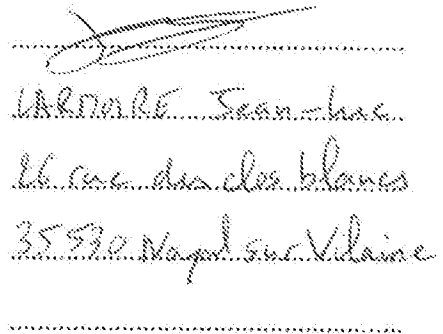 LARMOIRE Jean-Luc
26 rue des clos blancs
35530 Noyal sur Vilaine